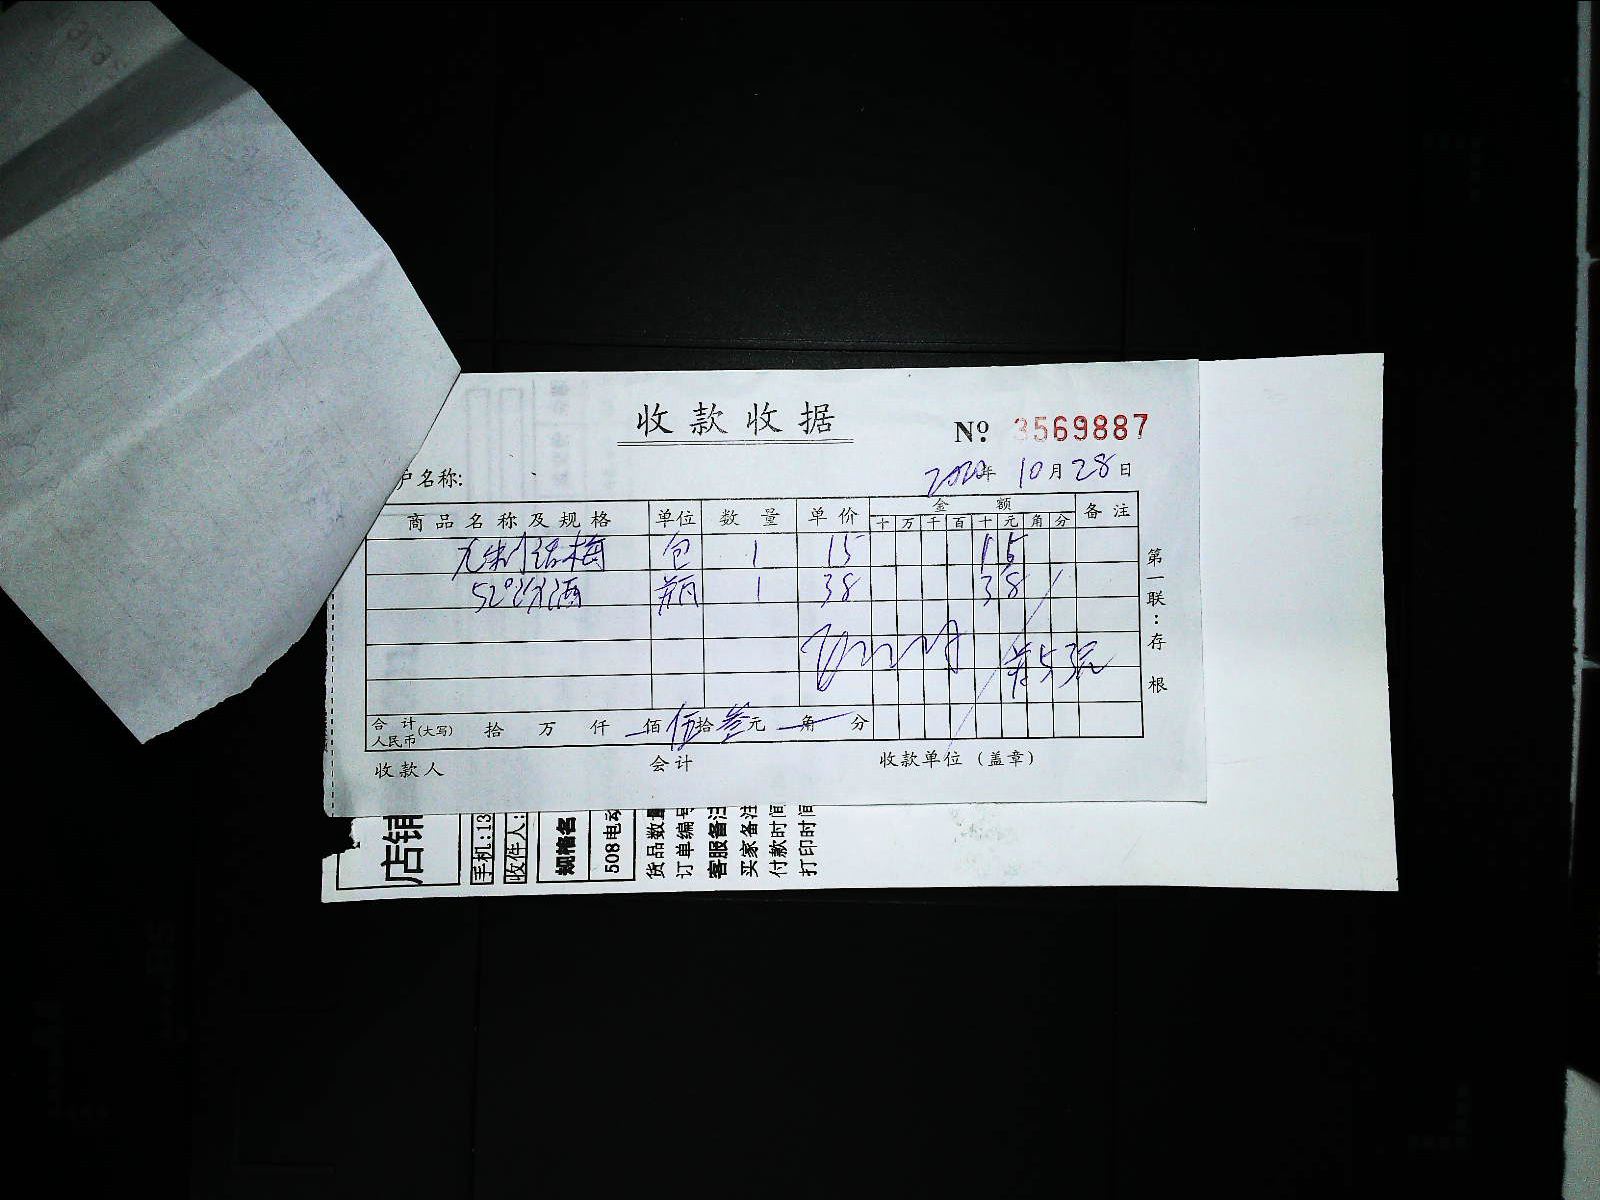 收款收据
No. 3569887
户名称:
2020年 10月28日
商品名称及规格 单位 数量 单价 金额 备注
十 万 千 百 十 元 角 分
话梅 包 1 15 15
52° 酒 瓶 1 38 38
合计人民币(大写) 拾 万 仟 佰 伍拾叁元 角 分
收款人 会计 收款单位(盖章)
第一联:存根
店铺
手机:13
收件人:
规格名
508电动
货品数量
订单编号
客服备注
买家备注
付款时间
打印时间